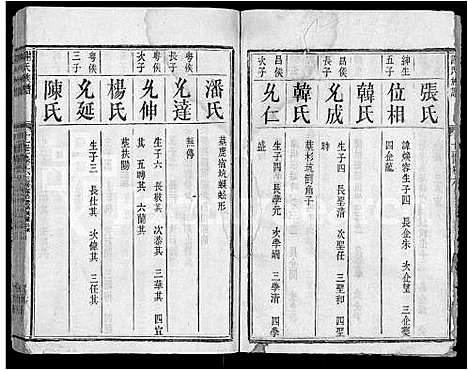 張氏
紳生
五子
位相
諱煥容生子四 長企朱 次企望 三企夔
四企龍
韓氏
昌侯
長子
允成
生子四 長聖清 次聖任 三聖和 四聖
時
韓氏
葬杉坑劉角子
昌侯
次子
允仁
生子四 長學元 次學綱 三學清 四學
盛
潘氏
墓鹿宿坑蜈蚣形
粵侯
長子
允達
無傳
粵侯
次子
允伸
生子六 長椒其 次恭其 三華其 四宜
其 五聘其 六蘭其
楊氏
葬扶陽
粵侯
三子
允延
生子三 長達其 次偉其 三任其
陳氏